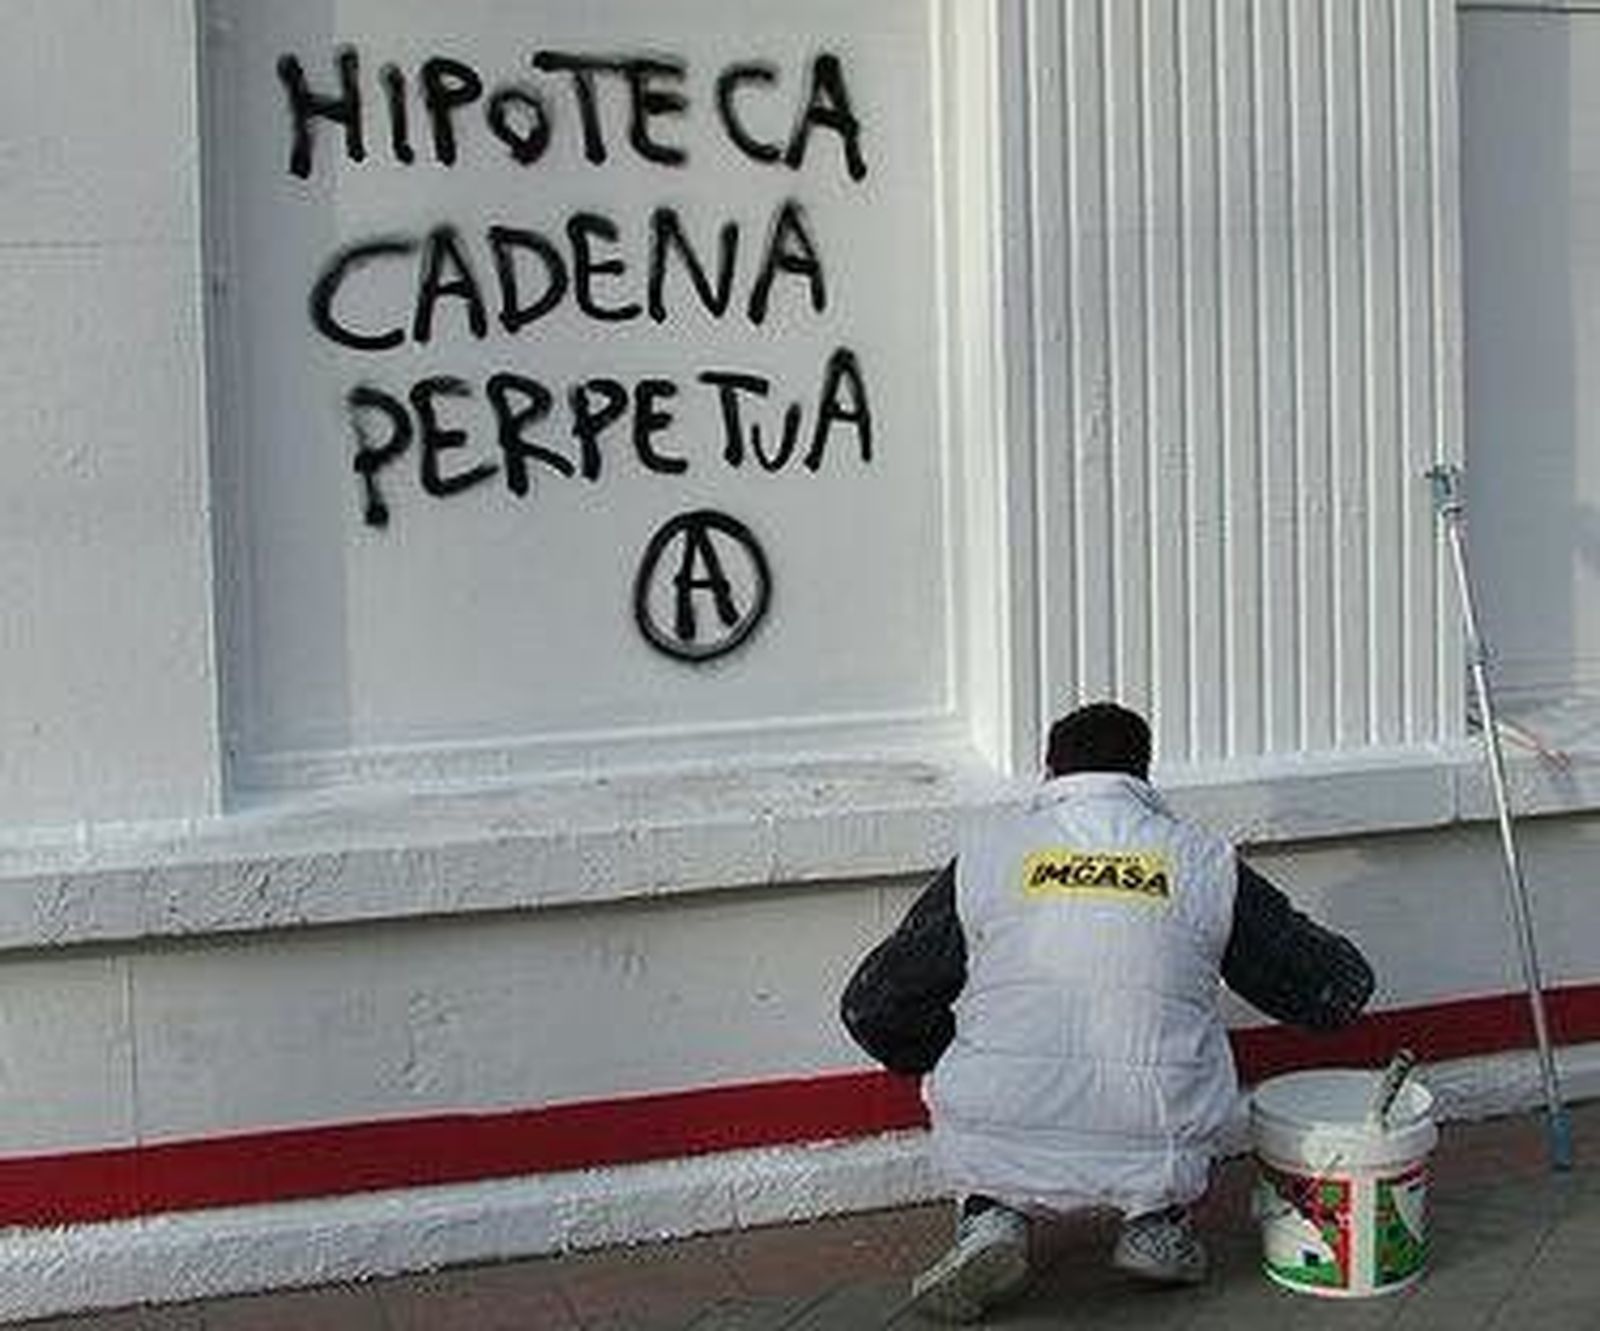 HIPOTECA
CADENA
PERPETUA
A
IMCASA